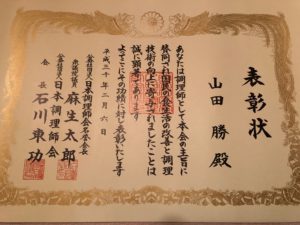 表彰状
山田 勝 殿
あなたは調理師として本会の主旨に
賛同され国民の食生活の改善と調理
技術の向上に寄与されましたことは
誠に顕著であります
よってここにその功績に対し表彰いたします
平成三十年二月六日
公益社団法人日本調理師会名誉会長
衆議院議員 麻生太郎
公益社団法人日本調理師会
会長 石川東功